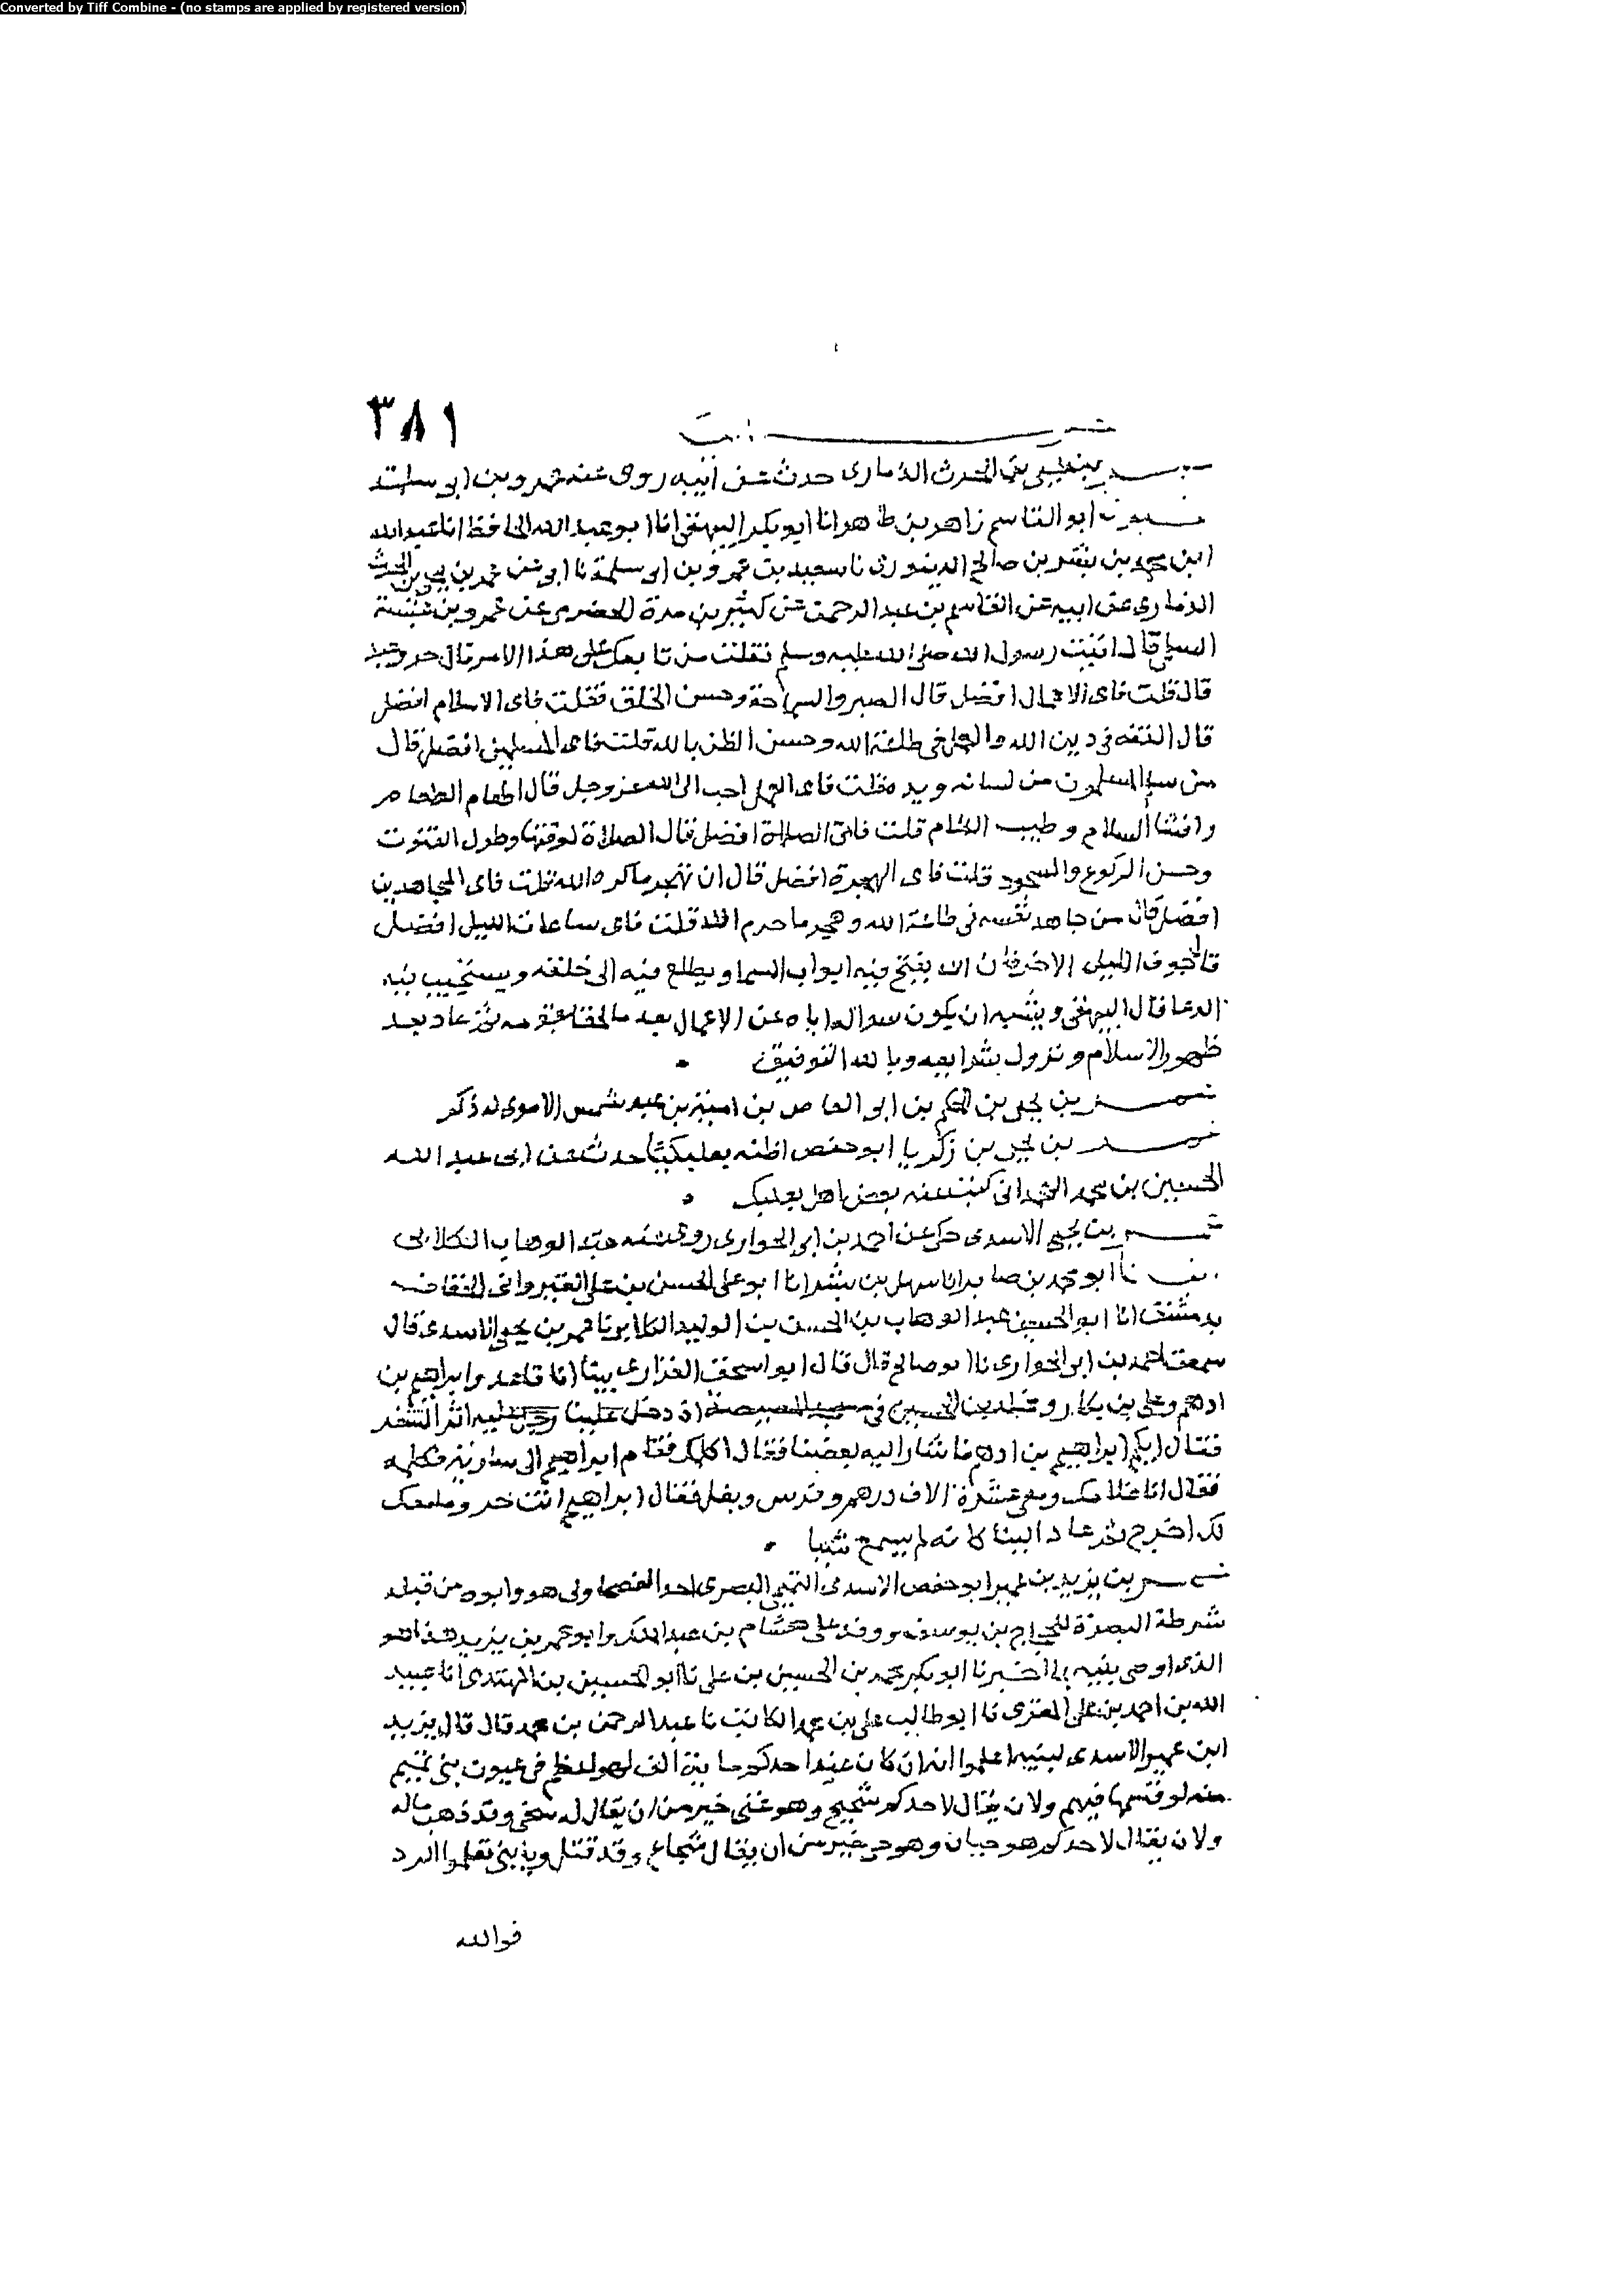 Converted by Tiff Combine - (no stamps are applied by registered version)
٣٨١
بن يحيى بن الحرث الذمارى حدث عن ابيه روى عنه عمرو بن ابى سلمة
ابو القاسم زاهر بن طاهر انا ابو بكر البيهقى انا ابو عبد الله الحافظ انا عبد الله
ابن محمد بن صالح الدينورى نا سعيد بن عمرو بن ابى سلمة نا ابى عن عمر بن يحيى بن الحرث
الذمارى عن ابيه عن القاسم بن عبد الرحمن عن كثير بن مرة الحضرمى عن عمرو بن عبسة
السلمى قال اتيت رسول الله صلى الله عليه وسلم فقلت من تابعك على هذا الامر قال حر وعبد
قال قلت فاى الاعمال افضل قال الصبر والسماحة وحسن الخلق فقلت فاى الاسلام افضل
قال الفقه فى دين الله والعمل فى طاعة الله وحسن الظن بالله قلت فاى المسلمين افضل قال
من سلم المسلمون من لسانه ويده قلت فاى العمل احب الى الله عز وجل قال اطعام الطعام
وافشا السلام وطيب الكلام قلت فاى الصلاة افضل قال الصلاة لوقتها وطول القنوت
وحسن الركوع والسجود قلت فاى الهجرة افضل قال ان تهجر ما كره الله قلت فاى المجاهدين
افضل قال من جاهد نفسه فى طاعة الله وهجر ما حرم الله قلت فاى ساعات الليل افضل
قال جوف الليل الاخر فان الله يفتح فيه ابواب السما ويطلع فيه الى خلقه ويستجيب فيه
الدعا قال البيهقى ويشبه ان يكون سواله اياه عن الاعمال بعد ما لحق بقومه ثم عاد بعد
ظهور الاسلام ونزول شرايعه وبالله التوفيق
عمر بن يحيى بن الحكم بن ابى العاص بن امية بن عبد شمس الاموى له ذكر
عمر بن يحيى بن زكريا ابو حفص اظنه بعلبكيا حدث عن ابى عبد الله
الحسين بن محمد كتب عنه بعض اهل بعلبك
عمر بن يحيى الاسدى حكى عن احمد بن ابى الحوارى روى عنه عبد الوهاب الكلابى
نا ابو محمد بن صابر انا سهل بن بشر انا ابو على الحسين بن على
بدمشق انا ابو الحسين عبد الوهاب بن الحسن بن الوليد الكلابى نا عمر بن يحيى الاسدى قال
سمعت احمد بن ابى الحوارى نا ابو صالح قال قال ابو اسحق الفزارى بينا انا قاعد وابراهيم بن
ادهم وعلى بن بكار ومخلد بن الحسين فى المصيصة اذ دخل علينا رجل عليه اثر السفر
فقال ايكم ابراهيم بن ادهم فاشار اليه بعضنا فقال اكلمك فقام ابراهيم الى سارية فكلمه
فقال انا غلامك ومعى عشرة الاف درهم وفرس وبغل فقال ابراهيم انت حر وما معك
لك اخرج ثم عاد الينا كانه لم يسمع شيا
عمر بن يزيد بن عمير ابو حفص الاسدى التميمى البصرى احد الفصحا ولى هو وابوه من قبله
شرطة البصرة للحجاج بن يوسف ووفد على هشام بن عبد الملك وابو عمر بن يزيد هذا هو
الذى اوصى بنيه اخبرنا ابو بكر محمد بن الحسين بن على نا ابو الحسين بن المهتدى انا عبيد
الله بن احمد بن على المقرى نا ابو طالب على بن محمد الكاتب نا عبد الرحمن بن محمد قال قال يزيد
ابن عمير الاسدى لبنيه اعلموا انه ان كان عند احدكم ماية الف لهو اعظم فى عيون بنى تميم
منه لو قسمها فيهم ولان يقال لاحدكم شحيح وهو غنى خير من ان يقال له سخى وقد ذهب ماله
ولان يقال لاحدكم هو جبان وهو حى خير من ان يقال شجاع وقد قتل ويا بنى تعلموا الرد
فوالله